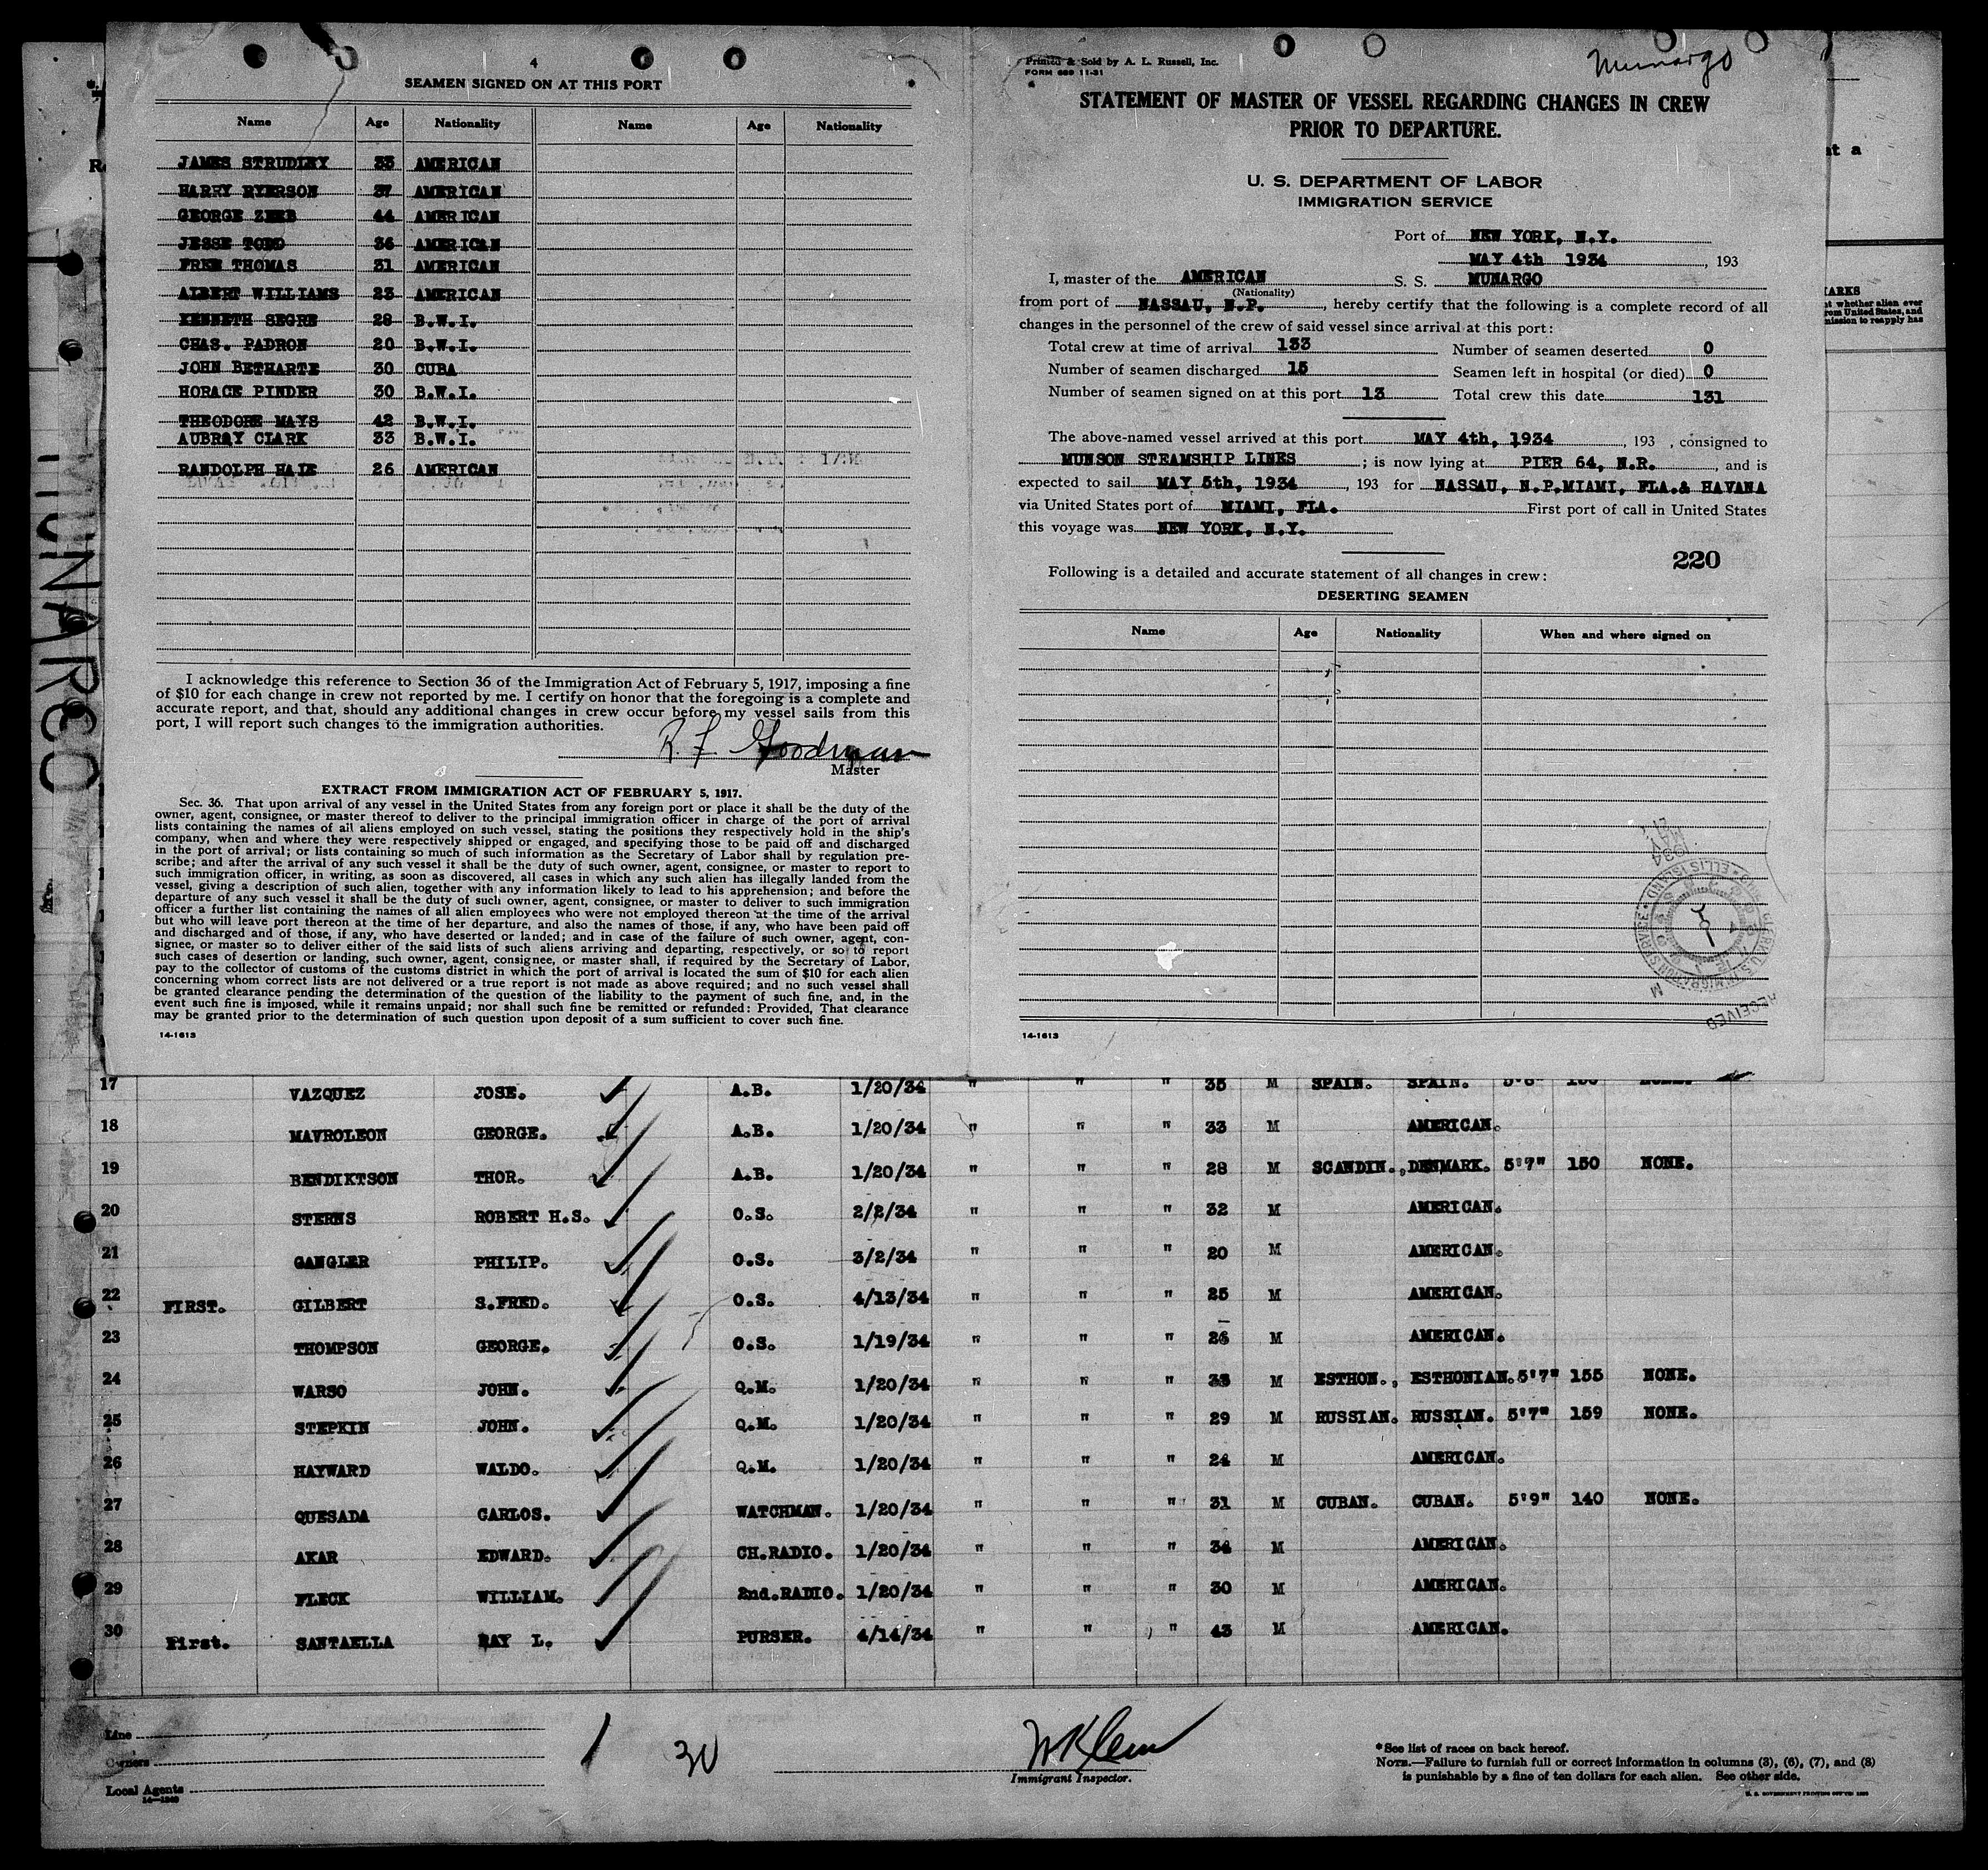 4
SEAMEN SIGNED ON AT THIS PORT
Name Age Nationality Name Age Nationality
JAMES STRUDLEY 33 AMERICAN
HARRY RYERSON 37 AMERICAN
GEORGE ZEEB 44 AMERICAN
JESSE TODD 36 AMERICAN
FRED THOMAS 31 AMERICAN
ALBERT WILLIAMS 23 AMERICAN
KENNETH SEGRE 28 B.W.I.
CHAS. PADRON 20 B.W.I.
JOHN BETHARTE 30 CUBA
HORACE PINDER 30 B.W.I.
THEODORE MAYS 42 B.W.I.
AUBRAY CLARK 33 B.W.I.
RANDOLPH HALE 26 AMERICAN
I acknowledge this reference to Section 36 of the Immigration Act of February 5, 1917, imposing a fine
of $10 for each change in crew not reported by me. I certify on honor that the foregoing is a complete and
accurate report, and that, should any additional changes in crew occur before my vessel sails from this
port, I will report such changes to the immigration authorities.
R. F. Goodman
Master
EXTRACT FROM IMMIGRATION ACT OF FEBRUARY 5, 1917.
Sec. 36. That upon arrival of any vessel in the United States from any foreign port or place it shall be the duty of the
owner, agent, consignee, or master thereof to deliver to the principal immigration officer in charge of the port of arrival
lists containing the names of all aliens employed on such vessel, stating the positions they respectively hold in the ship's
company, when and where they were respectively shipped or engaged, and specifying those to be paid off and discharged
in the port of arrival; or lists containing so much of such information as the Secretary of Labor shall by regulation pre-
scribe; and after the arrival of any such vessel it shall be the duty of such owner, agent, consignee, or master to report to
such immigration officer, in writing, as soon as discovered, all cases in which any such alien has illegally landed from the
vessel, giving a description of such alien, together with any information likely to lead to his apprehension; and before the
departure of any such vessel it shall be the duty of such owner, agent, consignee, or master to deliver to such immigration
officer a further list containing the names of all alien employees who were not employed thereon at the time of the arrival
but who will leave port thereon at the time of her departure, and also the names of those, if any, who have been paid off
and discharged and of those, if any, who have deserted or landed; and in case of the failure of such owner, agent, con-
signee, or master so to deliver either of the said lists of such aliens arriving and departing, respectively, or so to report
such cases of desertion or landing, such owner, agent, consignee, or master shall, if required by the Secretary of Labor,
pay to the collector of customs of the customs district in which the port of arrival is located the sum of $10 for each alien
concerning whom correct lists are not delivered or a true report is not made as above required; and no such vessel shall
be granted clearance pending the determination of the question of the liability to the payment of such fine, and, in the
event such fine is imposed, while it remains unpaid; nor shall such fine be remitted or refunded: Provided, That clearance
may be granted prior to the determination of such question upon deposit of a sum sufficient to cover such fine.
14-1613
Munargo
Printed & Sold by A. L. Russell, Inc.
FORM 689 11-31
STATEMENT OF MASTER OF VESSEL REGARDING CHANGES IN CREW
PRIOR TO DEPARTURE.
U. S. DEPARTMENT OF LABOR
IMMIGRATION SERVICE
Port of NEW YORK, N.Y.
MAY 4th 1934, 193
I, master of the AMERICAN S. S. MUNARGO
(Nationality)
from port of NASSAU, N.P., hereby certify that the following is a complete record of all
changes in the personnel of the crew of said vessel since arrival at this port:
Total crew at time of arrival 133 Number of seamen deserted 0
Number of seamen discharged 15 Seamen left in hospital (or died) 0
Number of seamen signed on at this port 13 Total crew this date 131
The above-named vessel arrived at this port MAY 4th, 1934, 193 , consigned to
MUNSON STEAMSHIP LINES ; is now lying at PIER 64, N.R., and is
expected to sail MAY 5th, 1934, 193 for NASSAU, N.P.MIAMI, FLA.& HAVANA
via United States port of MIAMI, FLA. First port of call in United States
this voyage was NEW YORK, N.Y.
220
Following is a detailed and accurate statement of all changes in crew:
DESERTING SEAMEN
Name Age Nationality When and where signed on
MAY 1934
U.S. IMMIGRATION SERVICE ELLIS ISLAND
RECEIVED
14-1613
MUNARGO
at a
17 VAZQUEZ JOSE. A.B. 1/20/34 " " " 35 M SPAIN. SPAIN.
18 MAVROLEON GEORGE. A.B. 1/20/34 " " " 33 M AMERICAN.
19 BENDIKTSON THOR. A.B. 1/20/34 " " " 28 M SCANDIN., DENMARK. 5'7" 150 NONE.
20 STERNS ROBERT H.S. O.S. 2/2/34 " " " 32 M AMERICAN.
21 GANGLER PHILIP. O.S. 3/2/34 " " " 20 M AMERICAN.
22 FIRST. GILBERT S.FRED. O.S. 4/13/34 " " " 25 M AMERICAN.
23 THOMPSON GEORGE. O.S. 1/19/34 " " " 26 M AMERICAN.
24 WARSO JOHN. Q.M. 1/20/34 " " " 33 M ESTHON., ESTHONIAN. 5'7" 155 NONE.
25 STEPKIN JOHN. Q.M. 1/20/34 " " " 29 M RUSSIAN. RUSSIAN. 5'7" 159 NONE.
26 HAYWARD WALDO. Q.M. 1/20/34 " " " 24 M AMERICAN.
27 QUESADA CARLOS. WATCHMAN. 1/20/34 " " " 31 M CUBAN. CUBAN. 5'9" 140 NONE.
28 AKAR EDWARD. CH.RADIO. 1/20/34 " " " 34 M AMERICAN.
29 FLECK WILLIAM. 2nd.RADIO. 1/20/34 " " " 30 M AMERICAN.
30 First. SANTAELLA RAY L. PURSER. 4/14/34 " " " 43 M AMERICAN.
Line
Owners
Local Agents
1 30
W Klein
Immigrant Inspector.
*See list of races on back hereof.
NOTE.—Failure to furnish full or correct information in columns (3), (6), (7), and (8)
is punishable by a fine of ten dollars for each alien. See other side.